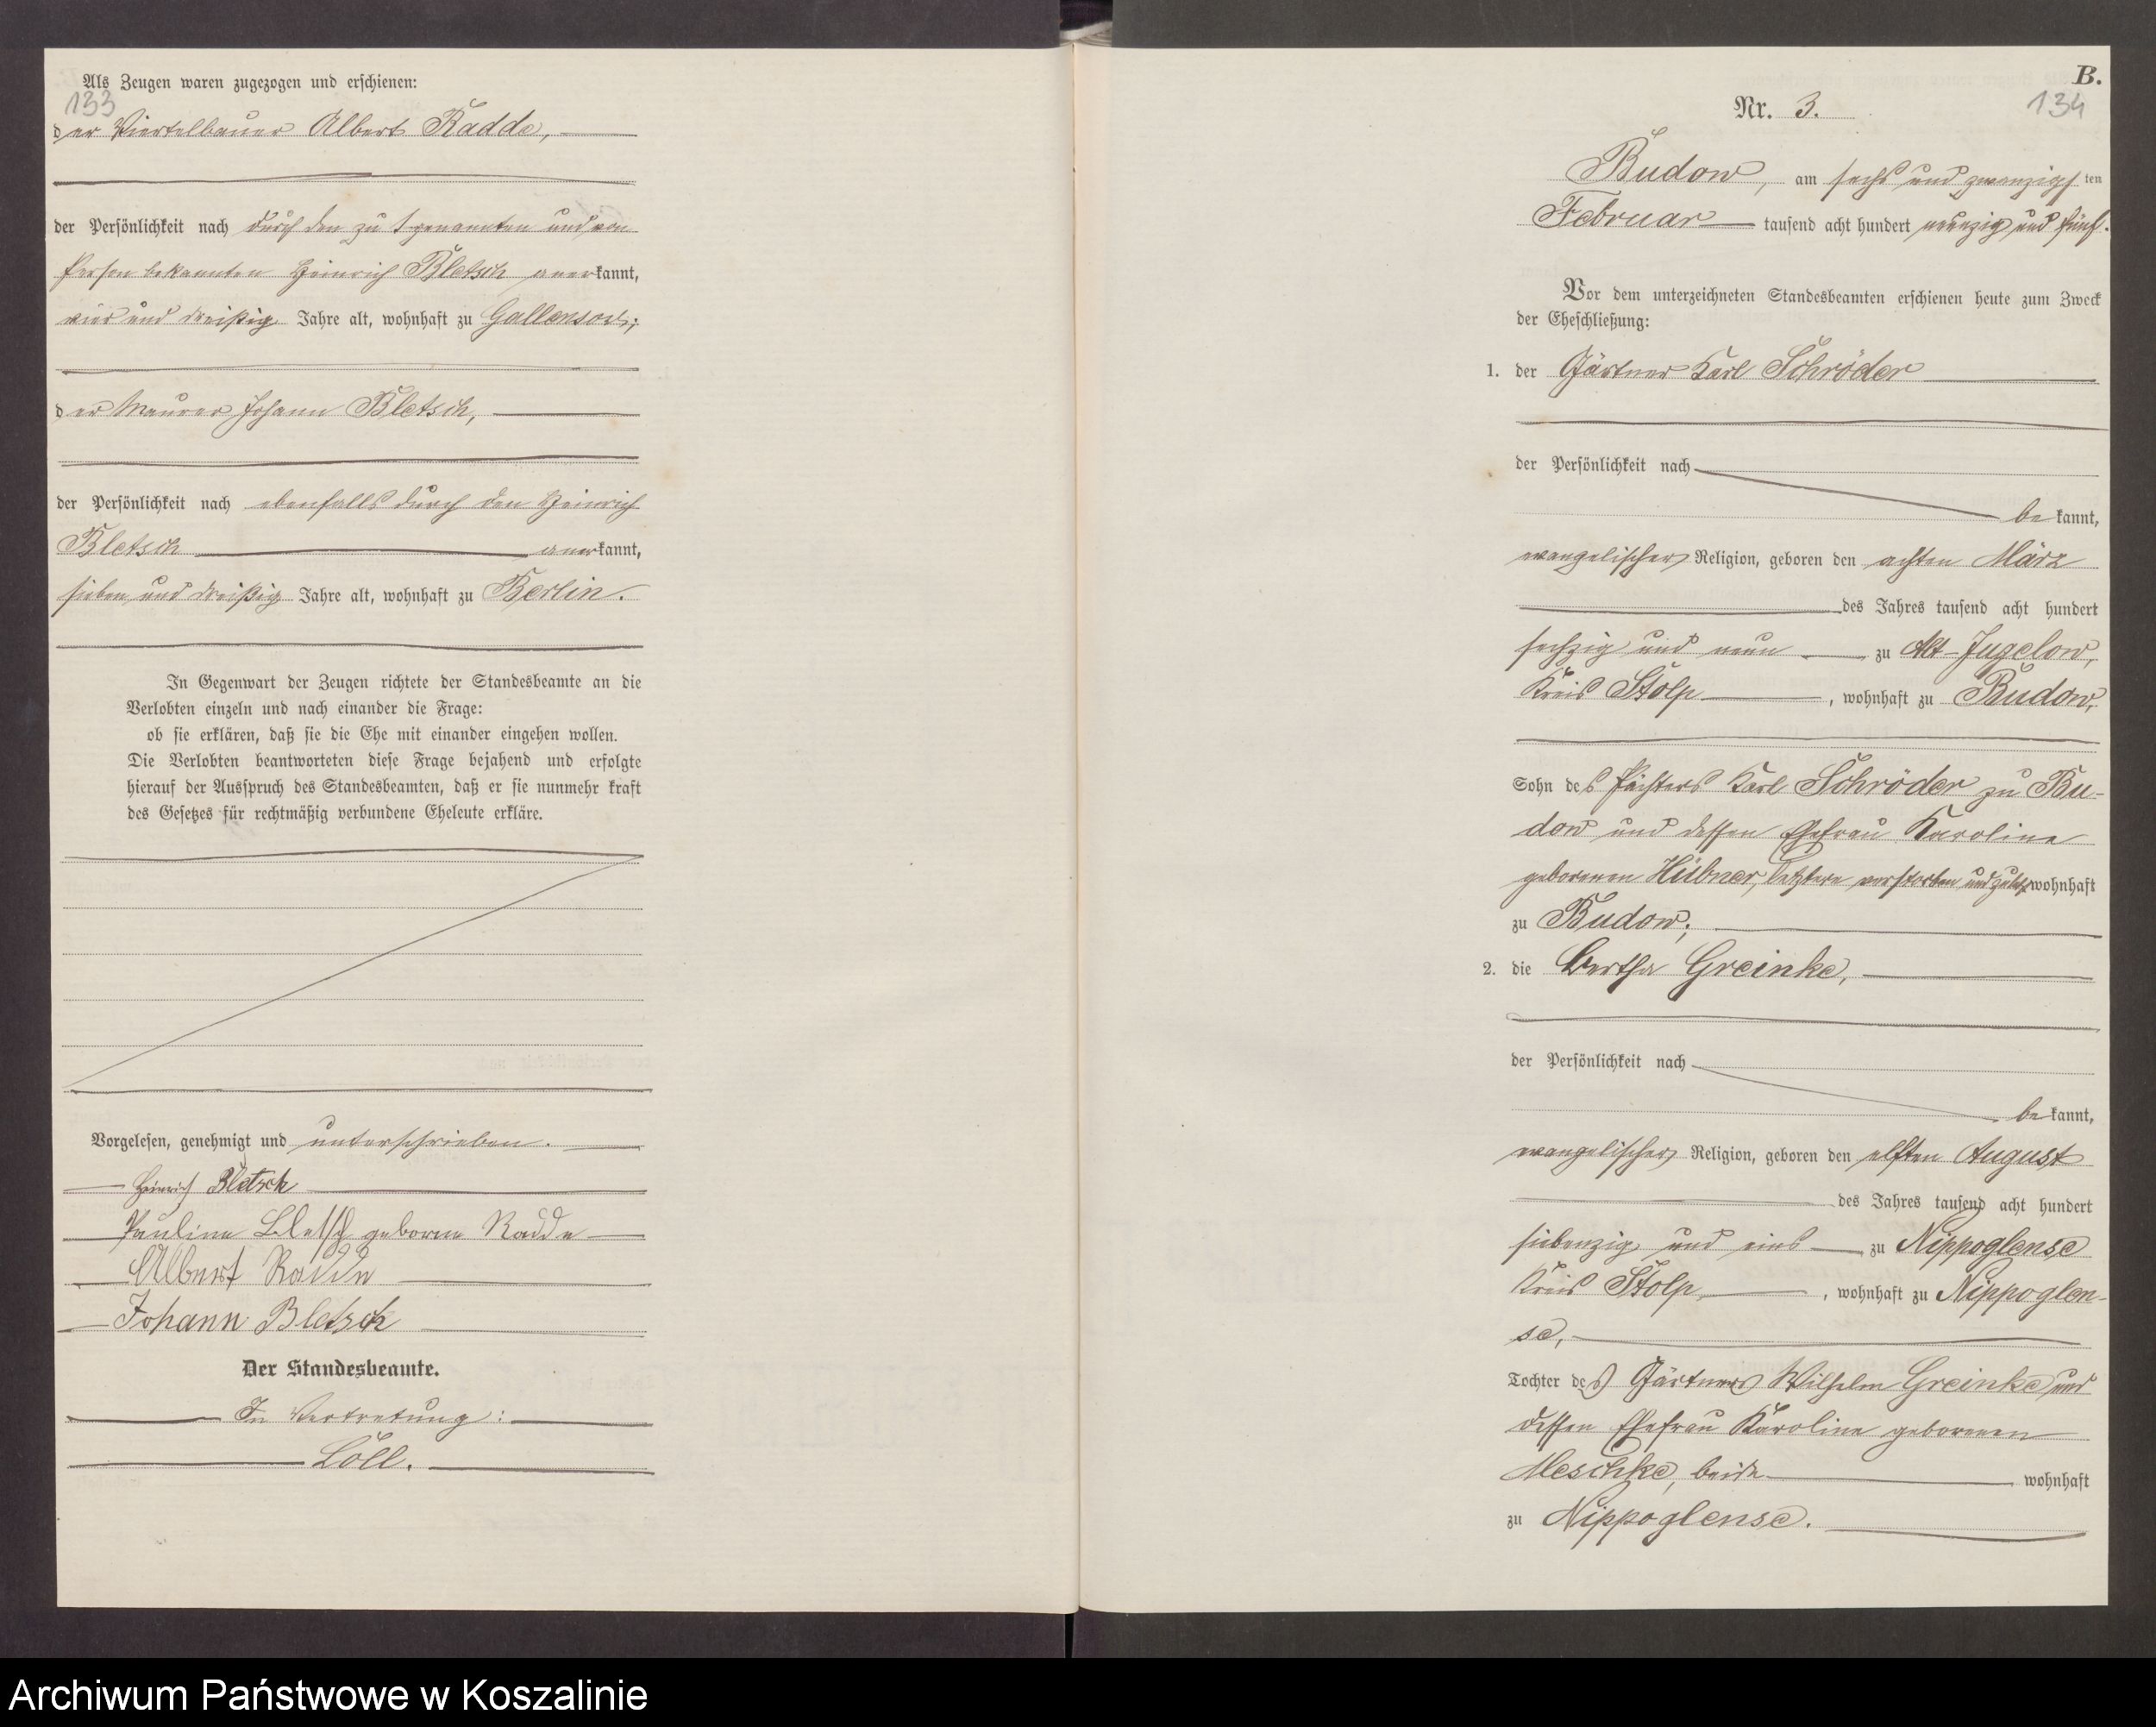 Als Zeugen waren zugezogen und erschienen:
133
der Viertelbauer Albert Radde,
der Persönlichkeit nach durch den zu 1 genannten und von
Person bekannten Heinrich Bletsch anerkannt,
vier und dreißig Jahre alt, wohnhaft zu Gallensow;
der Maurer Johann Bletsch,
der Persönlichkeit nach ebenfalls durch den Heinrich
Bletsch anerkannt,
sieben und dreißig Jahre alt, wohnhaft zu Berlin.
In Gegenwart der Zeugen richtete der Standesbeamte an die
Verlobten einzeln und nach einander die Frage:
ob sie erklären, daß sie die Ehe mit einander eingehen wollen.
Die Verlobten beantworteten diese Frage bejahend und erfolgte
hierauf der Ausspruch des Standesbeamten, daß er sie nunmehr kraft
des Gesetzes für rechtmäßig verbundene Eheleute erkläre.
Vorgelesen, genehmigt und unterschrieben.
Heinrich Bletsch
Pauline Bletsch geborne Radde
Albert Radde
Johann Bletsch
Der Standesbeamte.
In Vertretung:
Löll.
B.
134
Nr. 3.
Budow, am sechs und zwanzigsten
Februar tausend acht hundert neunzig und fünf.
Vor dem unterzeichneten Standesbeamten erschienen heute zum Zweck
der Eheschließung:
1. der Gärtner Karl Schröder
der Persönlichkeit nach
bekannt,
evangelischer Religion, geboren den achten März
des Jahres tausend acht hundert
sechzig und neun zu Alt-Jugelow,
Kreis Stolp, wohnhaft zu Budow,
Sohn des Pächters Karl Schröder zu Bu-
dow und dessen Ehefrau Karoline
geborenen Hübner, letztere verstorben und zuletzt wohnhaft
zu Budow;
2. die Bertha Greinke,
der Persönlichkeit nach
bekannt,
evangelischer Religion, geboren den elften August
des Jahres tausend acht hundert
siebenzig und eins zu Nippoglense
Kreis Stolp, wohnhaft zu Nippoglen-
se,
Tochter des Gärtners Wilhelm Greinke und
dessen Ehefrau Karoline geborenen
Meschke, beide wohnhaft
zu Nippoglense.
Archiwum Państwowe w Koszalinie